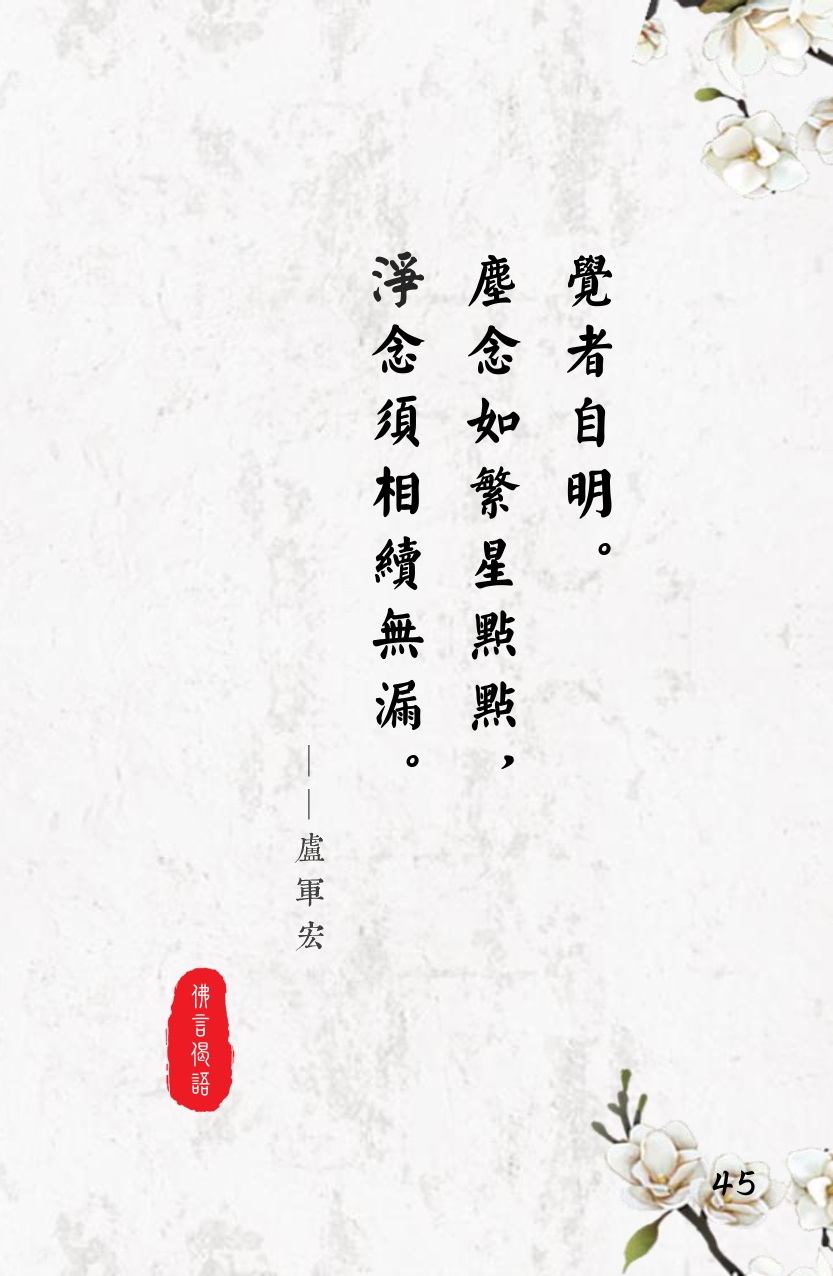 覺者自明。
塵念如繁星點點，
淨念須相續無漏。
——盧軍宏
佛言偈語
45